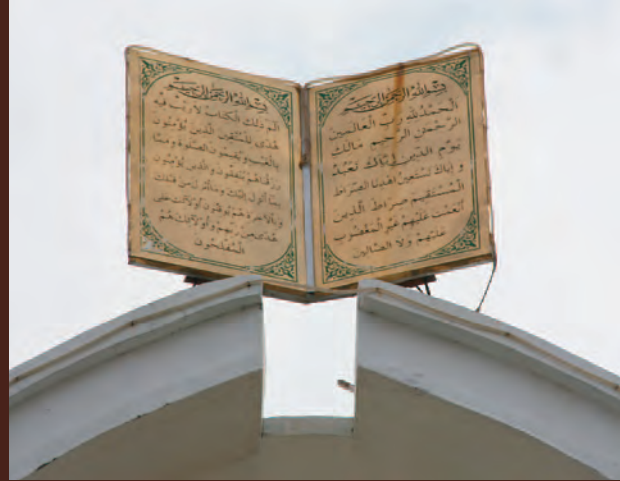 بسم الله الرحمن الرحيم
الحمد لله رب العالمين
الرحمن الرحيم مالك
يوم الدين اياك نعبد
و اياك نستعين اهدنا الصراط
المستقيم صراط الذين
أنعمت عليهم غير المغضوب
عليهم ولا الضالين
بسم الله الرحمن الرحيم
الم ذلك الكتاب لا ريب فيه
هدى للمتقين الذين يؤمنون
بالغيب ويقيمون الصلوة ومما
رزقناهم ينفقون والذين يؤمنون
بما أنزل إليك وما أنزل من قبلك
وبالآخرة هم يوقنون أولائك على
هدى من ربهم وأولائك هم
المفلحون